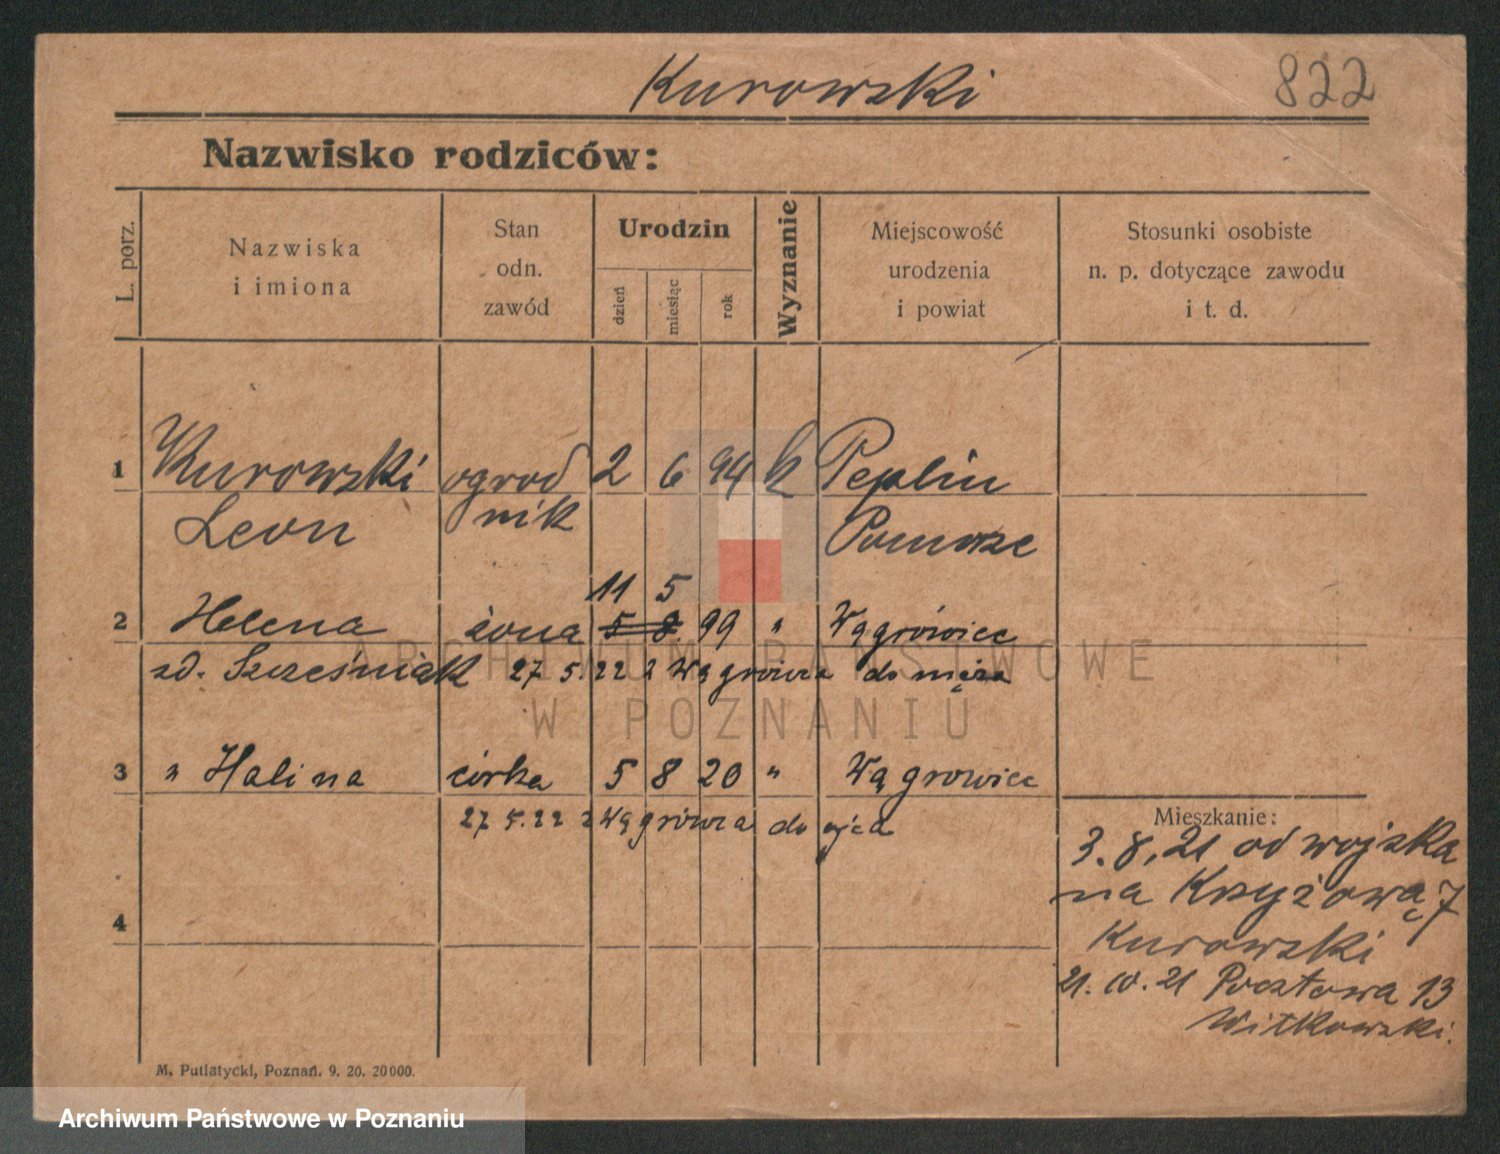 Kurowski
822
Nazwisko rodziców:
L. porz.
Nazwiska
i imiona
Stan
odn.
zawód
Urodzin
dzień
miesiąc
rok
Wyznanie
Miejscowość
urodzenia
i powiat
Stosunki osobiste
n. p. dotyczące zawodu
i t. d.
1 Kurowski ogrod 2 6 94 k Peplin
Leon nik Pomorze
11 5
2 Helena żona 5 8 99 " Wągrówiec
zd. Szcześniak 27 5.22 z Wągrówca do męża
3 " Halina córka 5 8 20 " Wągrowiec
27 5.22 z Wągrówca do ojca
4
Mieszkanie:
3.8.21 od wojska
na Krzyżową 7
Kurowski
21.10.21 Pocztowa 13
Witkowski.
M. Putiatycki, Poznań. 9. 20. 20000.
ARCHIWUM PAŃSTWOWE
W POZNANIU
Archiwum Państwowe w Poznaniu